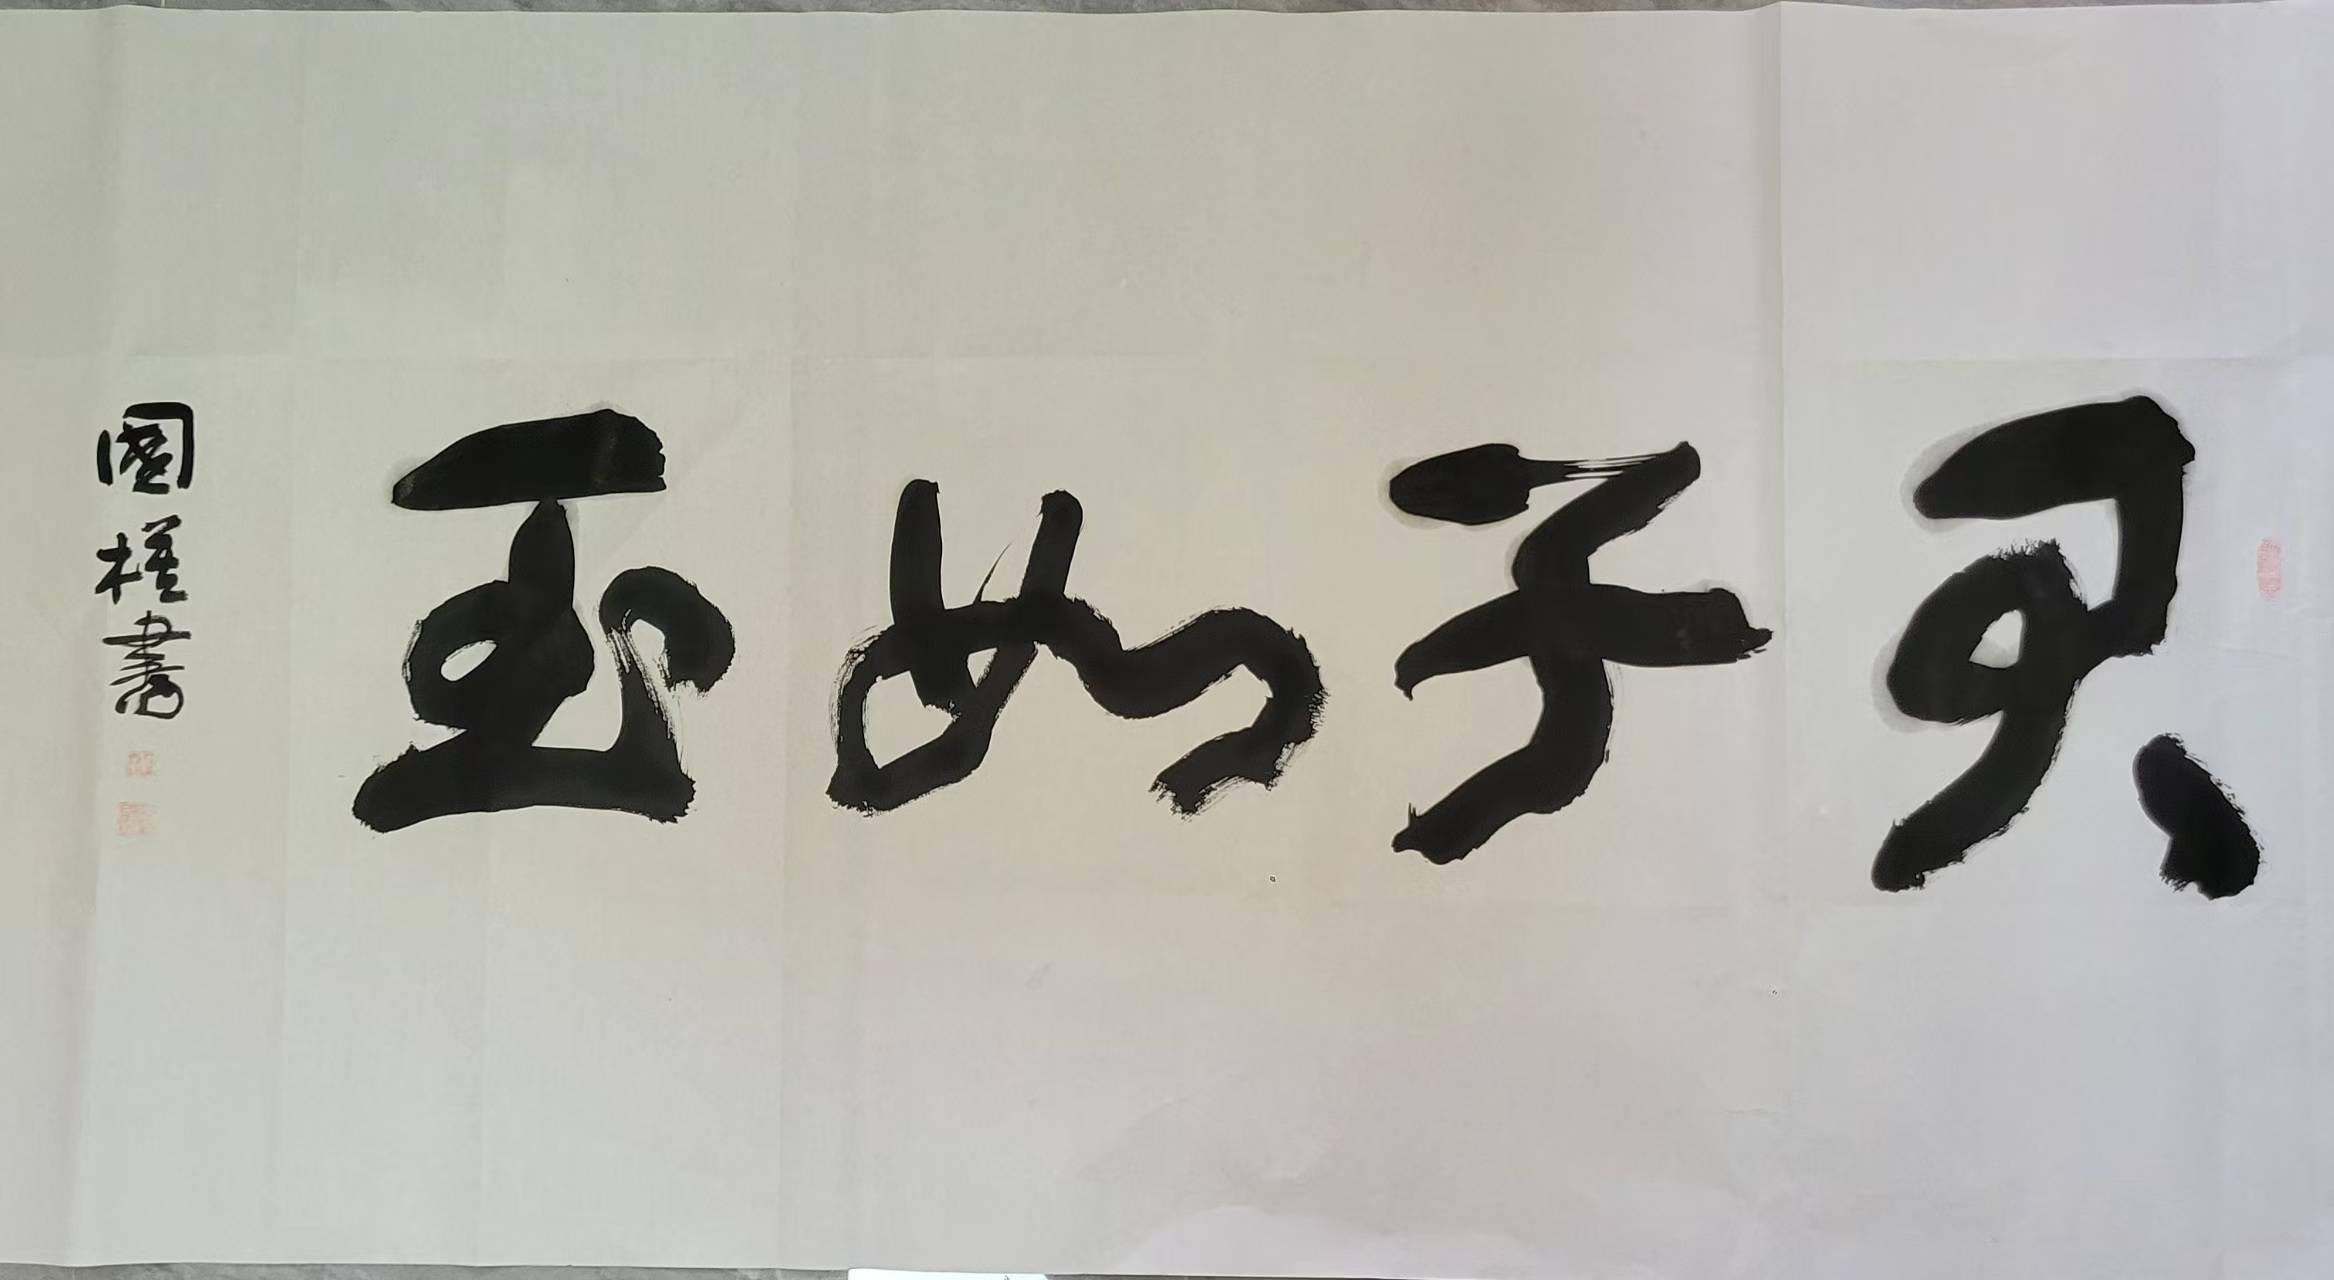 君子如玉
國權書